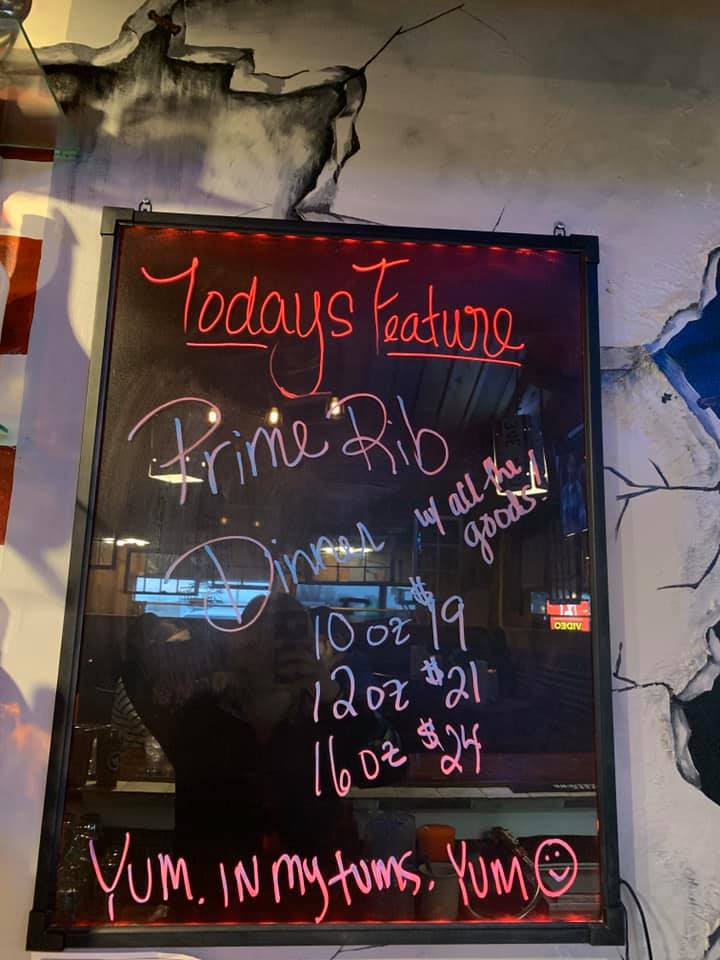 Todays Feature
Prime Rib
Dinner w/ all the
goods!
10 oz $19
12 oz $21
16 oz $24
Yum. IN my tums. Yum
VIDEO